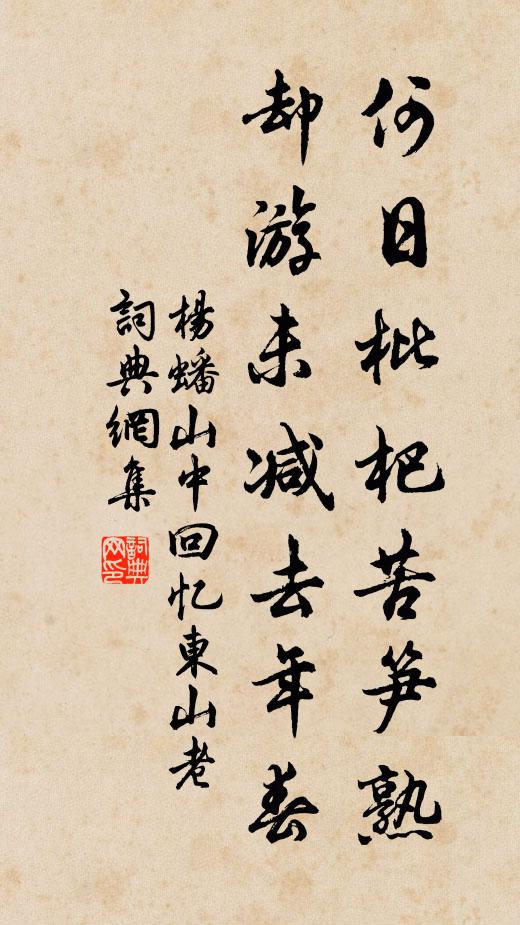 何日枇杷苦笋熟
却游未减去年春
楊蟠山中回忆東山老
詞典網集
詞典网印